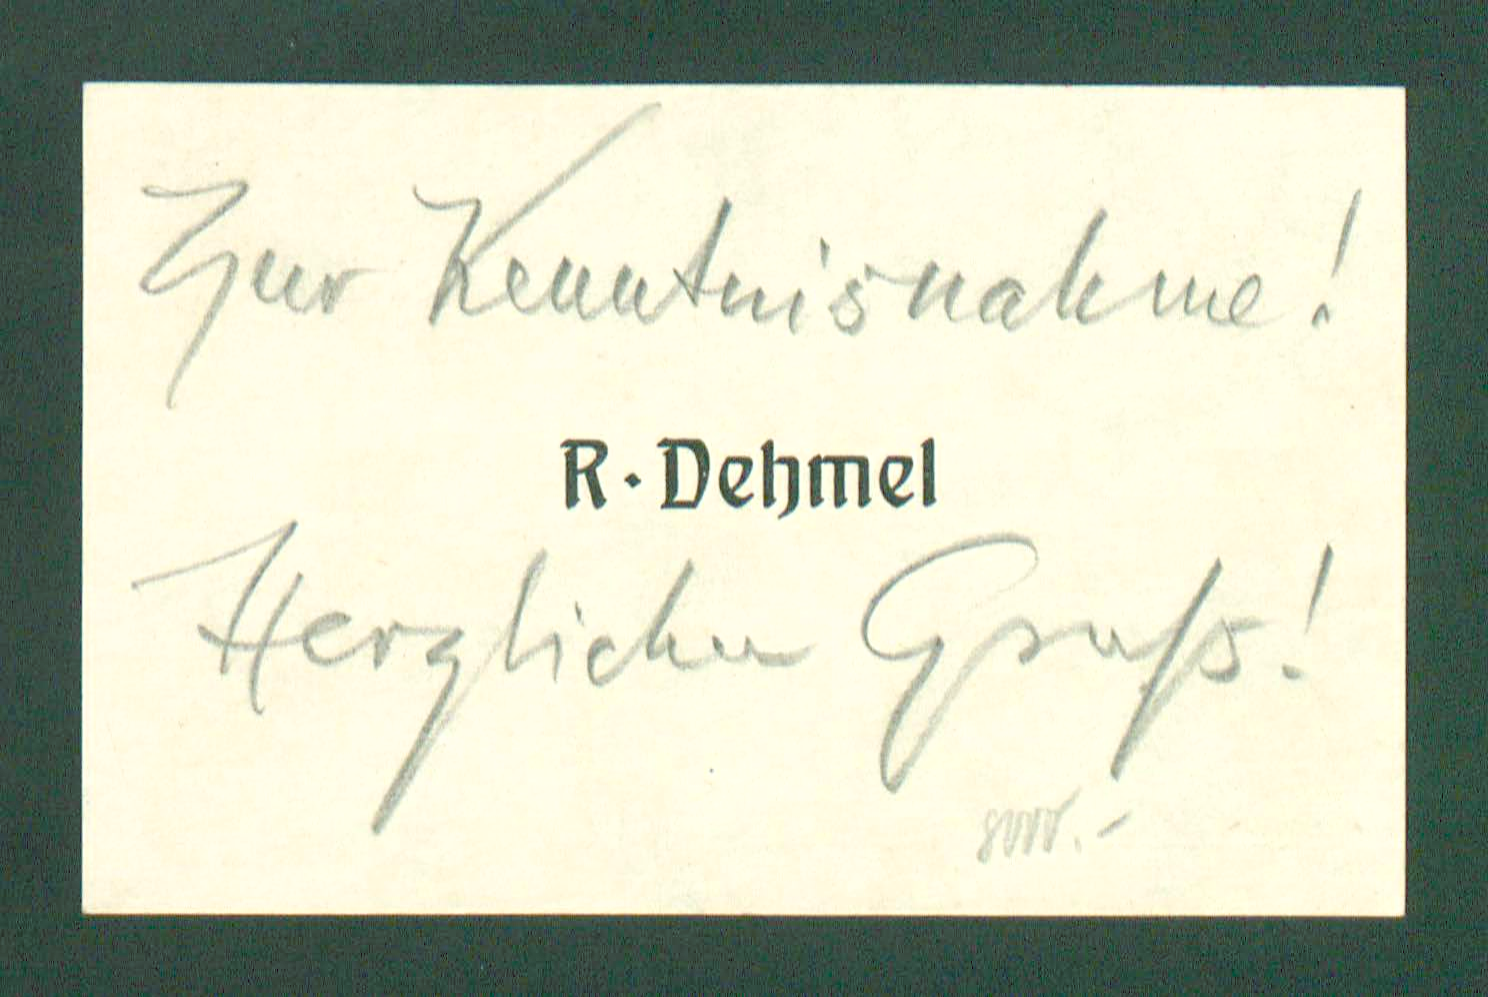 Zur Kenntnisnahme!
R · Dehmel
Herzlichen Gruß!